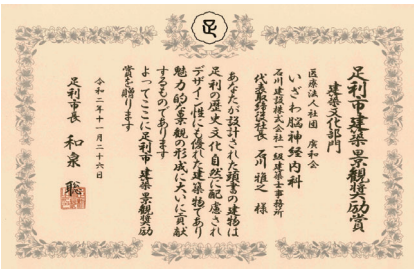 足利市建築景観奨励賞
建築文化部門
医療法人社団 廣和会
いざわ脳神経内科
石川建設株式会社一級建築士事務所
代表取締役社長 石川雅之 様
あなたが設計された頭書の建物は
足利の歴史文化自然に配慮され
デザイン性にも優れた建築物であり
魅力的な景観の形成に大いに貢献
するものであります
よってここに足利市建築景観奨励
賞を贈ります
令和二年十一月二十六日
足利市長 和泉 聡